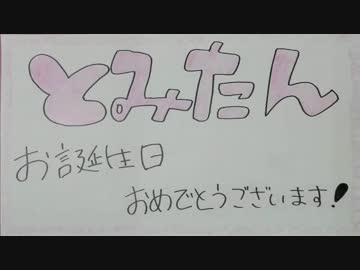 とみたん
お誕生日
おめでとうございます!